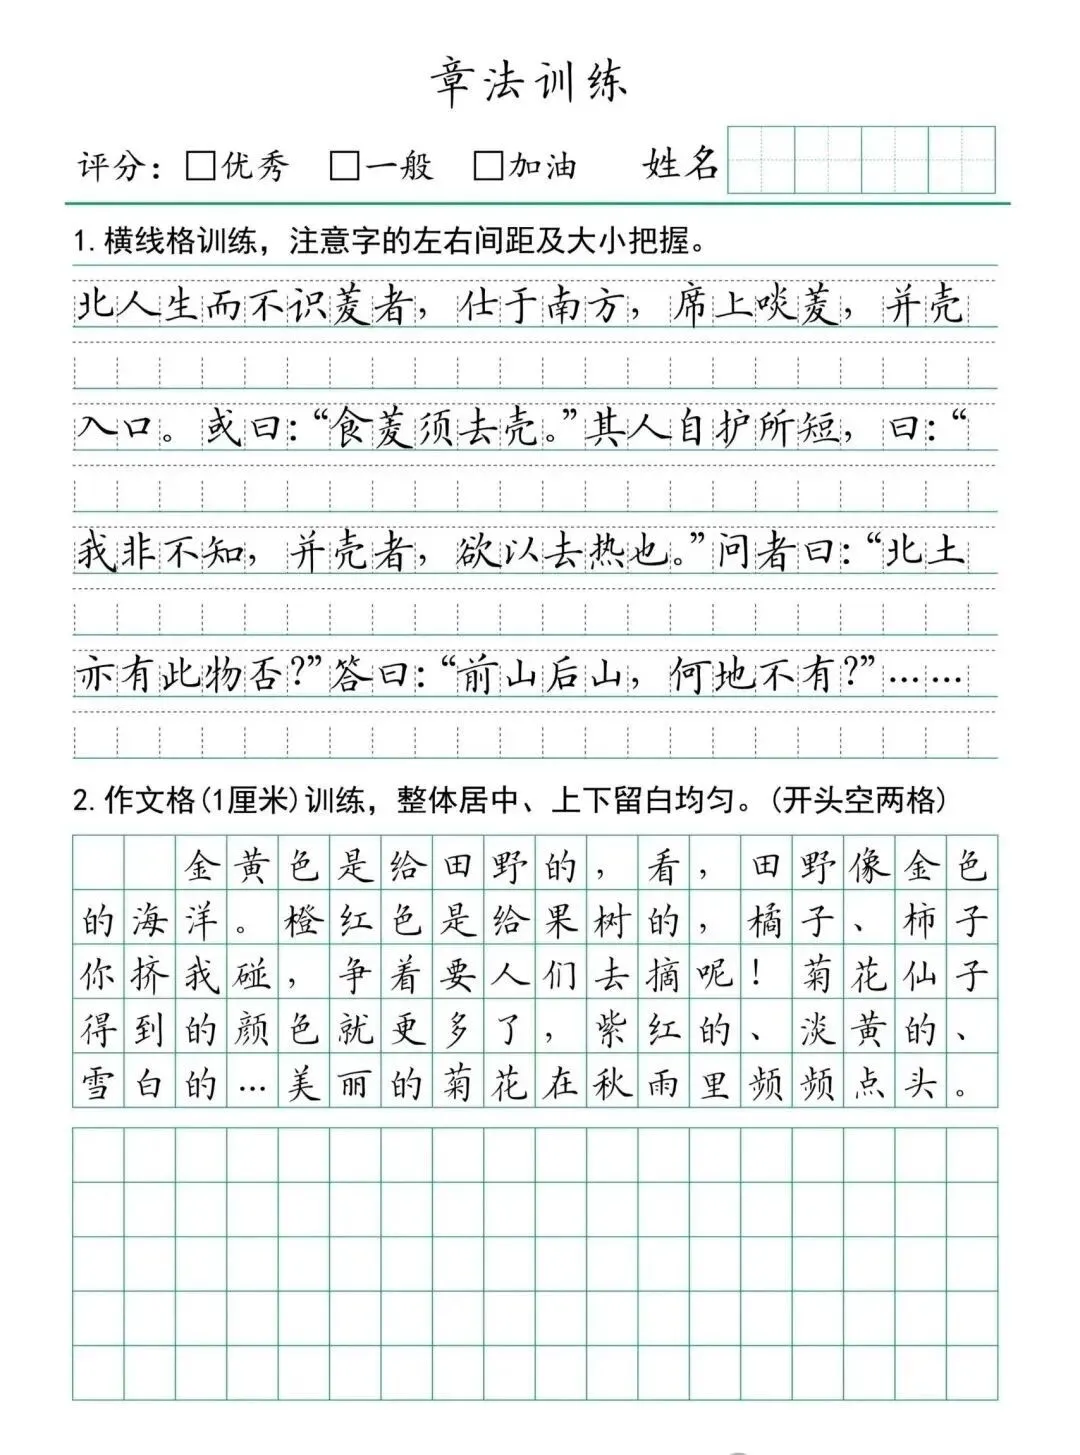 章法训练
评分：□优秀 □一般 □加油 姓名
1.横线格训练，注意字的左右间距及大小把握。
北人生而不识菱者，仕于南方，席上啖菱，并壳
入口。或曰：“食菱须去壳。”其人自护所短，曰：“
我非不知，并壳者，欲以去热也。”问者曰：“北土
亦有此物否？”答曰：“前山后山，何地不有？”……
2.作文格(1厘米)训练，整体居中、上下留白均匀。(开头空两格)
金黄色是给田野的，看，田野像金色
的海洋。橙红色是给果树的，橘子、柿子
你挤我碰，争着要人们去摘呢！菊花仙子
得到的颜色就更多了，紫红的、淡黄的、
雪白的…美丽的菊花在秋雨里频频点头。